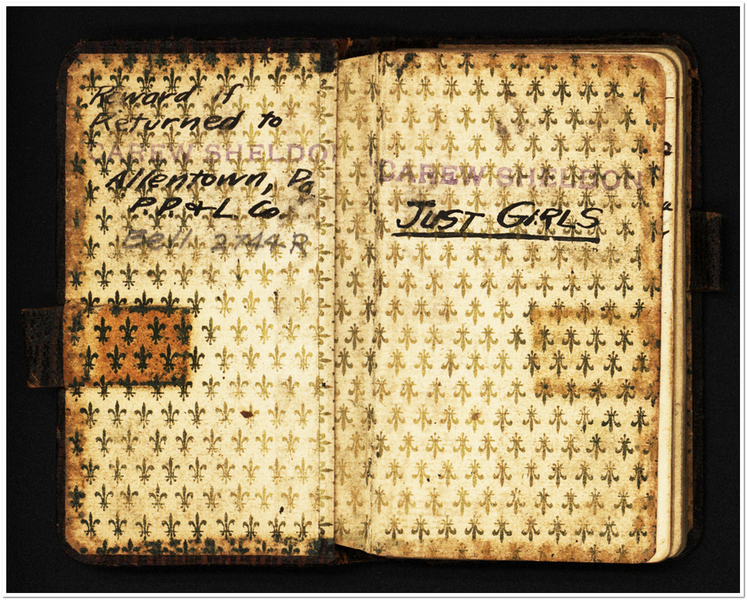 Reward if
Returned to
CAREW SHELDON
Allentown, Pa
P.P. & L Co.
Bell 2744 R
CAREW SHELDON
JUST GIRLS